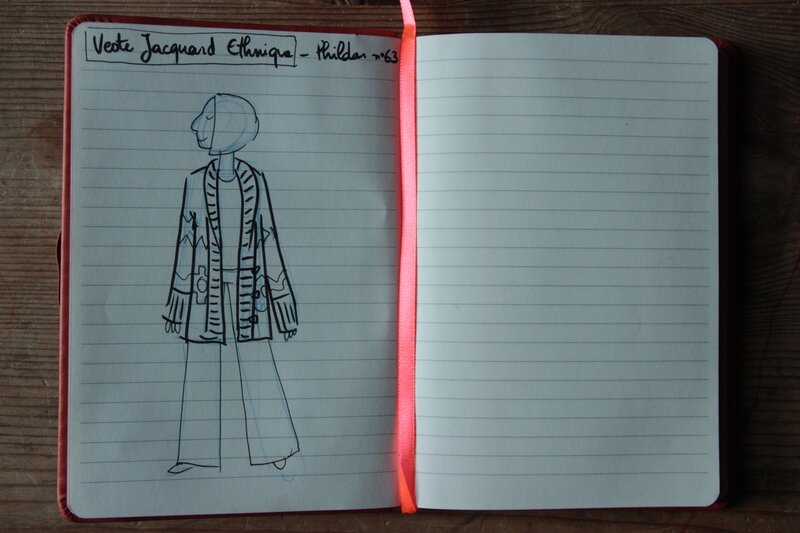 Veste Jacquard Ethnique – Phildar n°63